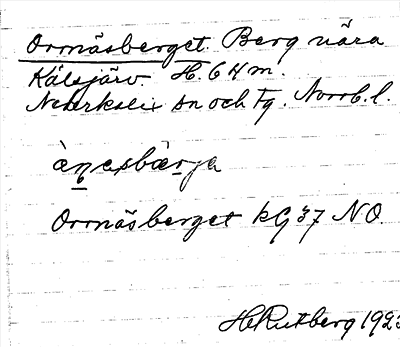 Orrnäsberget. Berg nära
Kälsjärv. H. 64 m.
Nederkalix sn och Fg. Norrb. l.
Orrnäsberget kG 37 NO.
H Rutberg 1923